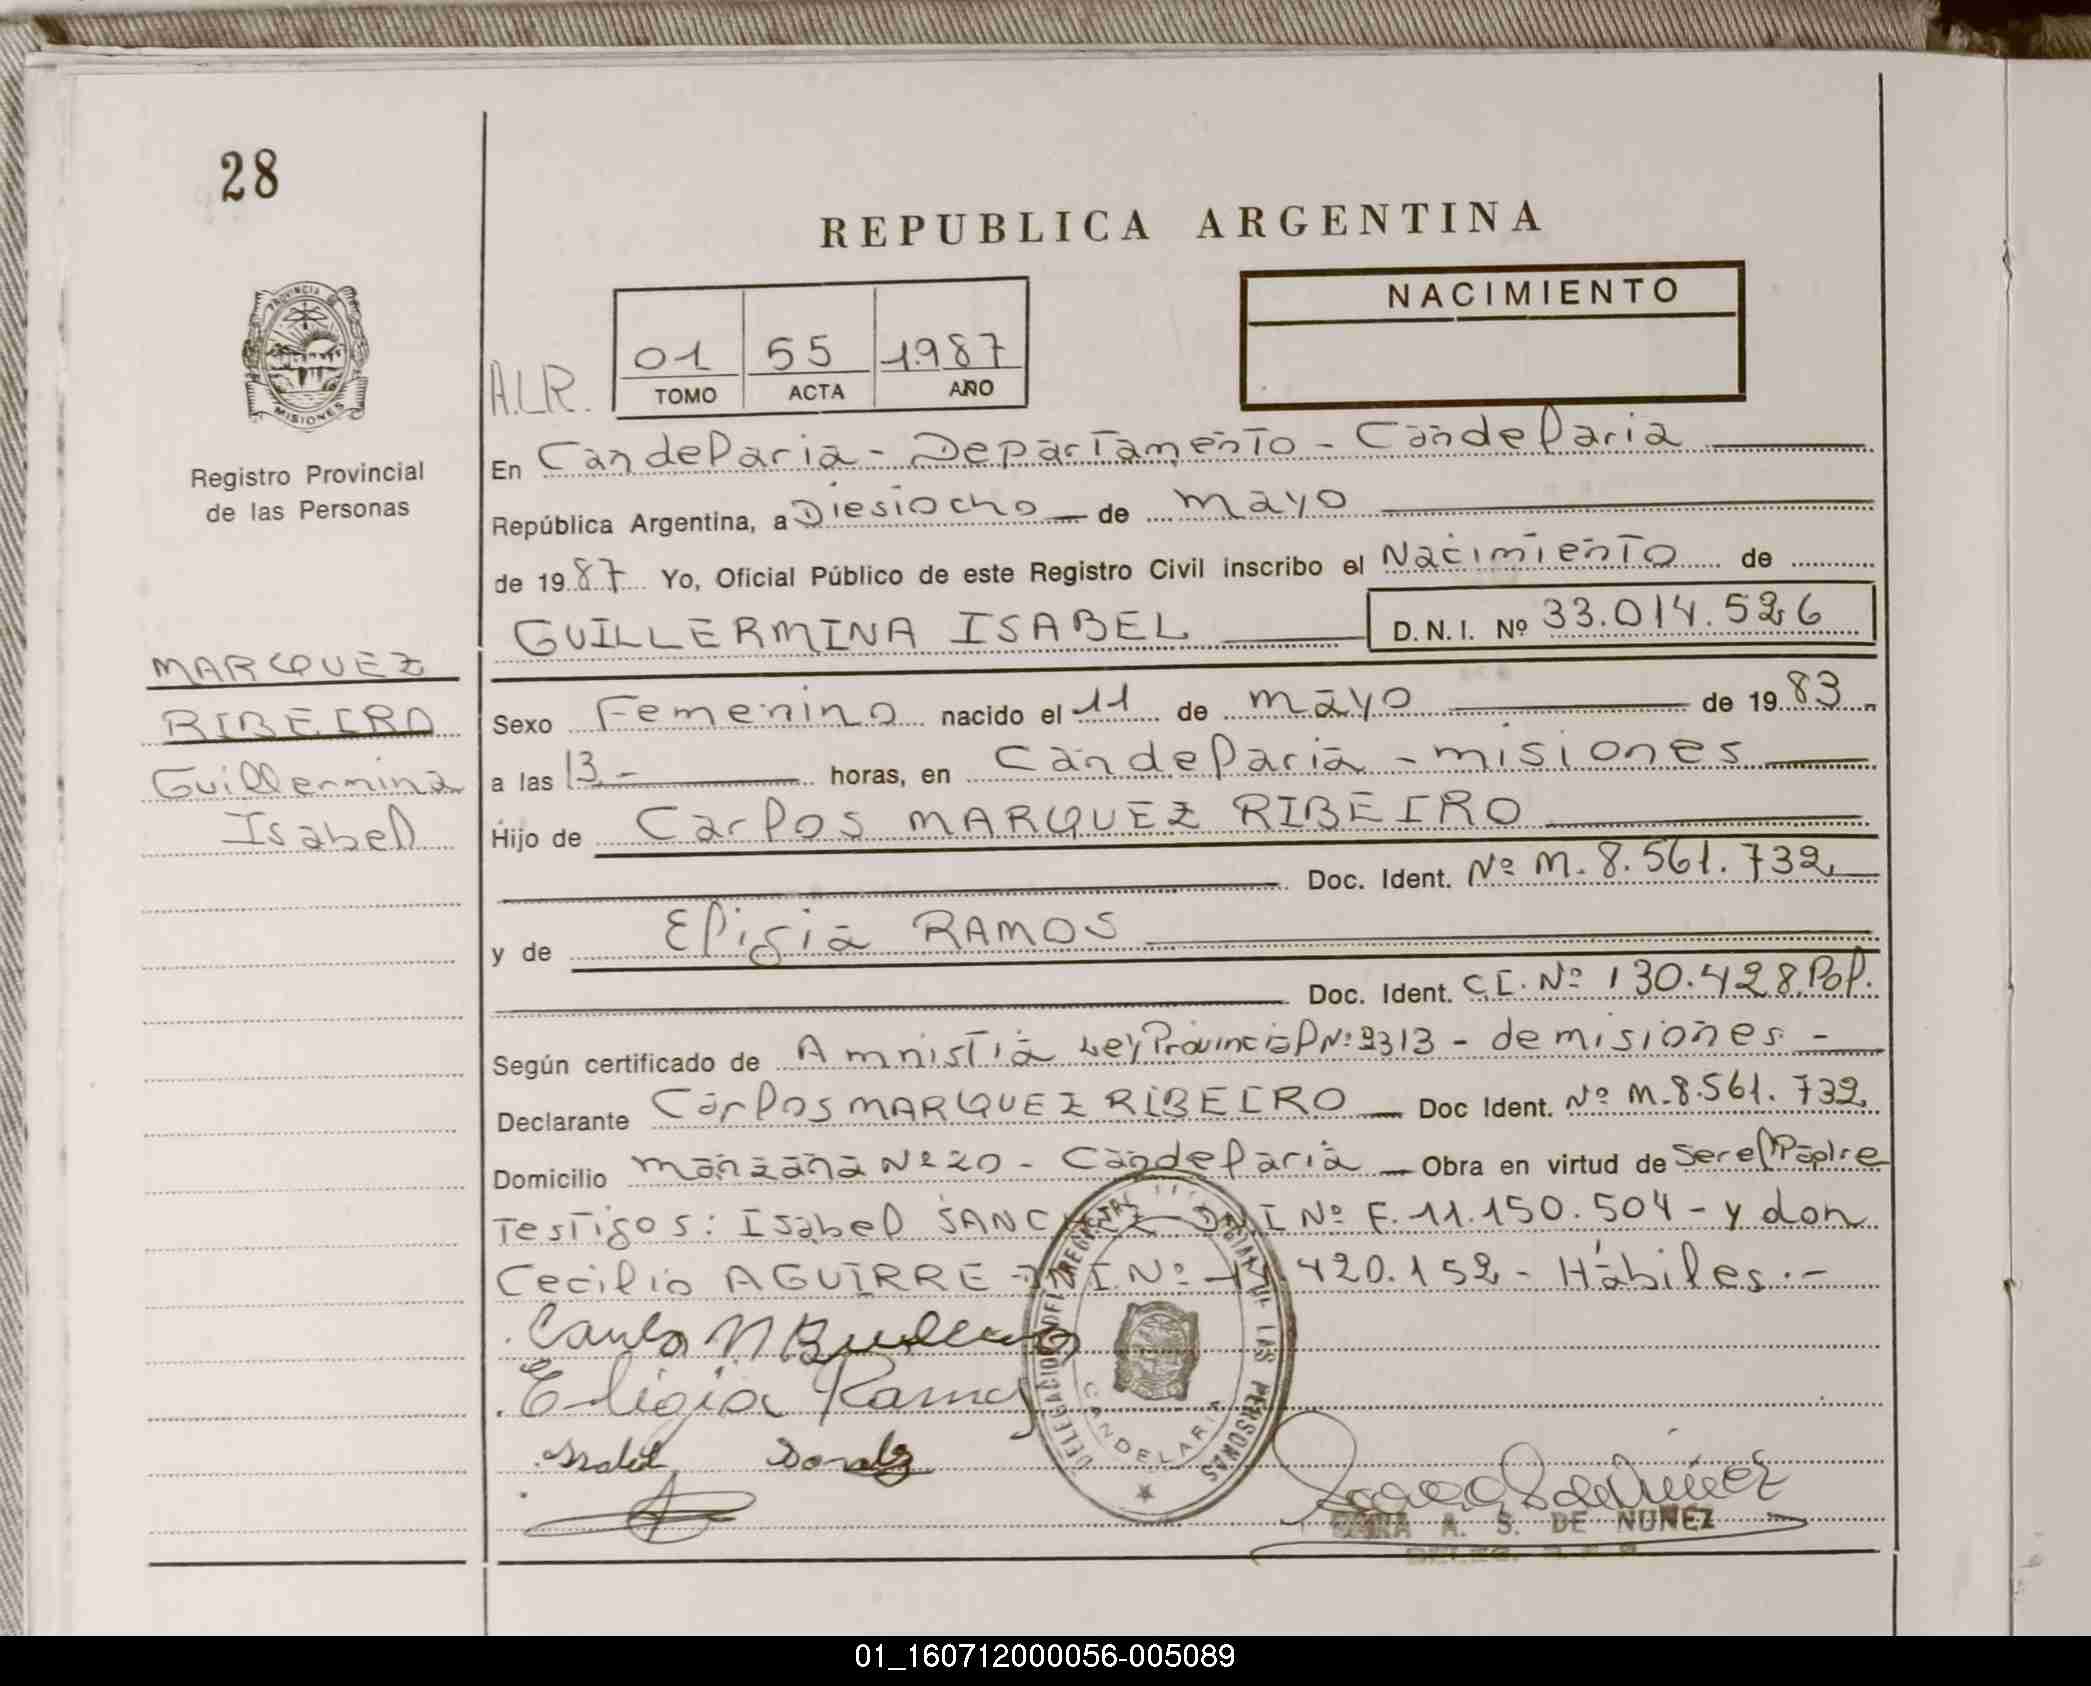 28
REPUBLICA ARGENTINA
PROVINCIA DE
MISIONES
Registro Provincial
de las Personas
A.I.R.
01 55 1987
TOMO ACTA AÑO
NACIMIENTO
En Candelaria - Departamento - Candelaria
República Argentina, a Diesiocho de mayo
de 1987 Yo, Oficial Público de este Registro Civil inscribo el Nacimiento de
GUILLERMINA ISABEL D.N.I. Nº 33.014.526
MARQUEZ
RIBEIRO
Guillermina
Isabel
Sexo Femenino nacido el 11 de mayo de 1983
a las 13.- horas, en Candelaria - misiones
Hijo de Carlos MARQUEZ RIBEIRO
Doc. Ident. Nº M. 8.561.732
y de Eligia RAMOS
Doc. Ident. C.I. Nº 130.428 Pol.
Según certificado de Amnistia Ley Provincial Nº 2313 - de misiones. -
Declarante Carlos MARQUEZ RIBEIRO Doc Ident. Nº M.8.561.732
Domicilio manzana Nº 20 - Candelaria Obra en virtud de Ser el Padre
Testigos: Isabel SANCHEZ DNI Nº F. 11.150.504 - y don
Cecilio AGUIRRE DNI Nº 420.152 - Hábiles.-
Eligia Ramos
DELEGACION DEL REGISTRO PROVINCIAL DE LAS PERSONAS
CANDELARIA
SARA A. S. DE NUÑEZ
01_160712000056-005089